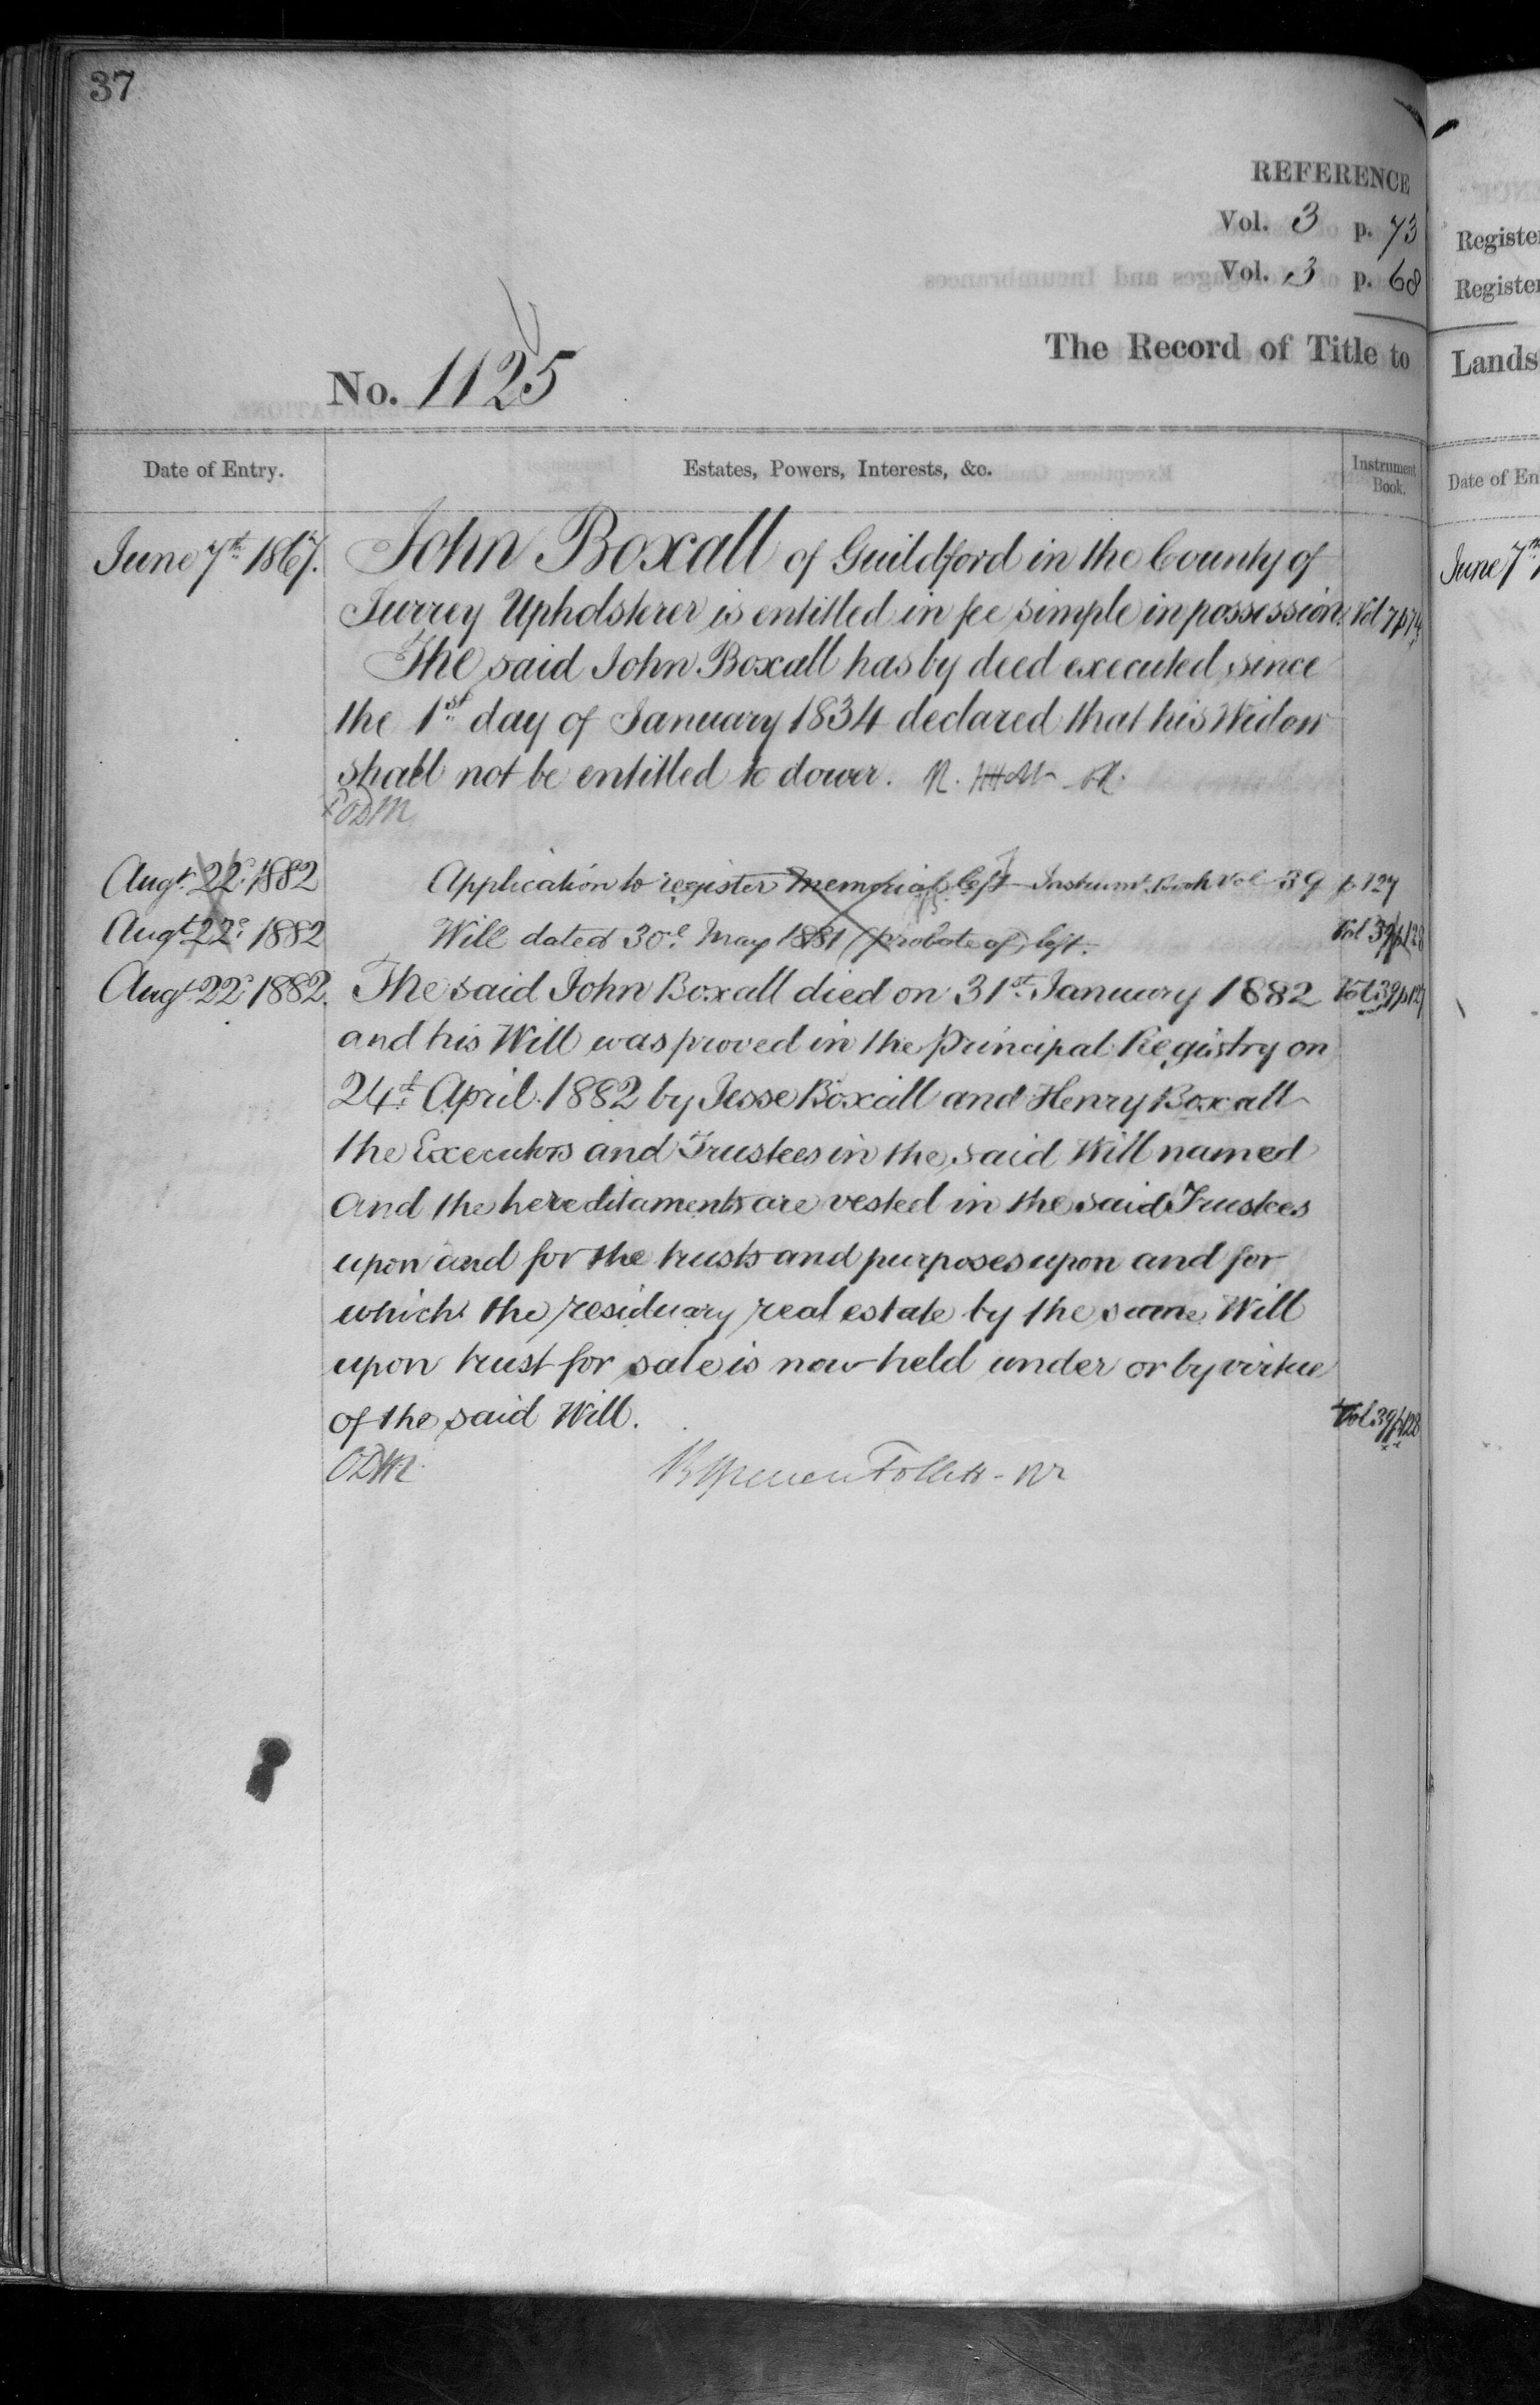 37
REFERENCE
Vol. 3 p. 73
Vol. 3 p. 68
The Record of Title to
No. 1125
Date of Entry.
Estates, Powers, Interests, &c.
Instrument Book.
June 7th 1867. John Boxall of Guildford in the County of
Surrey Upholsterer is entitled in fee simple in possession. Vol 7 p
The said John Boxall has by deed executed since
the 1st day of January 1834 declared that his Widow
shall not be entitled to dower.
ODM
Augt 22d 1882 Application to register memorial left Instrumt Book Vol 39 p 127
Augt 22d 1882 Will dated 30th May 1881 (probate of) left. Vol 39 p 128
Augt 22d 1882. The said John Boxall died on 31st January 1882 Vol 39 p 127
and his Will was proved in the Principal Registry on
24th April 1882 by Jesse Boxall and Henry Boxall
the Executors and Trustees in the said Will named
and the hereditaments are vested in the said Trustees
upon and for the trusts and purposes upon and for
which the residuary real estate by the same Will
upon trust for sale is now held under or by virtue
of the said Will. Vol 39 p 128
ODM
Follett
Register
Register
Lands
Date of En
June 7th